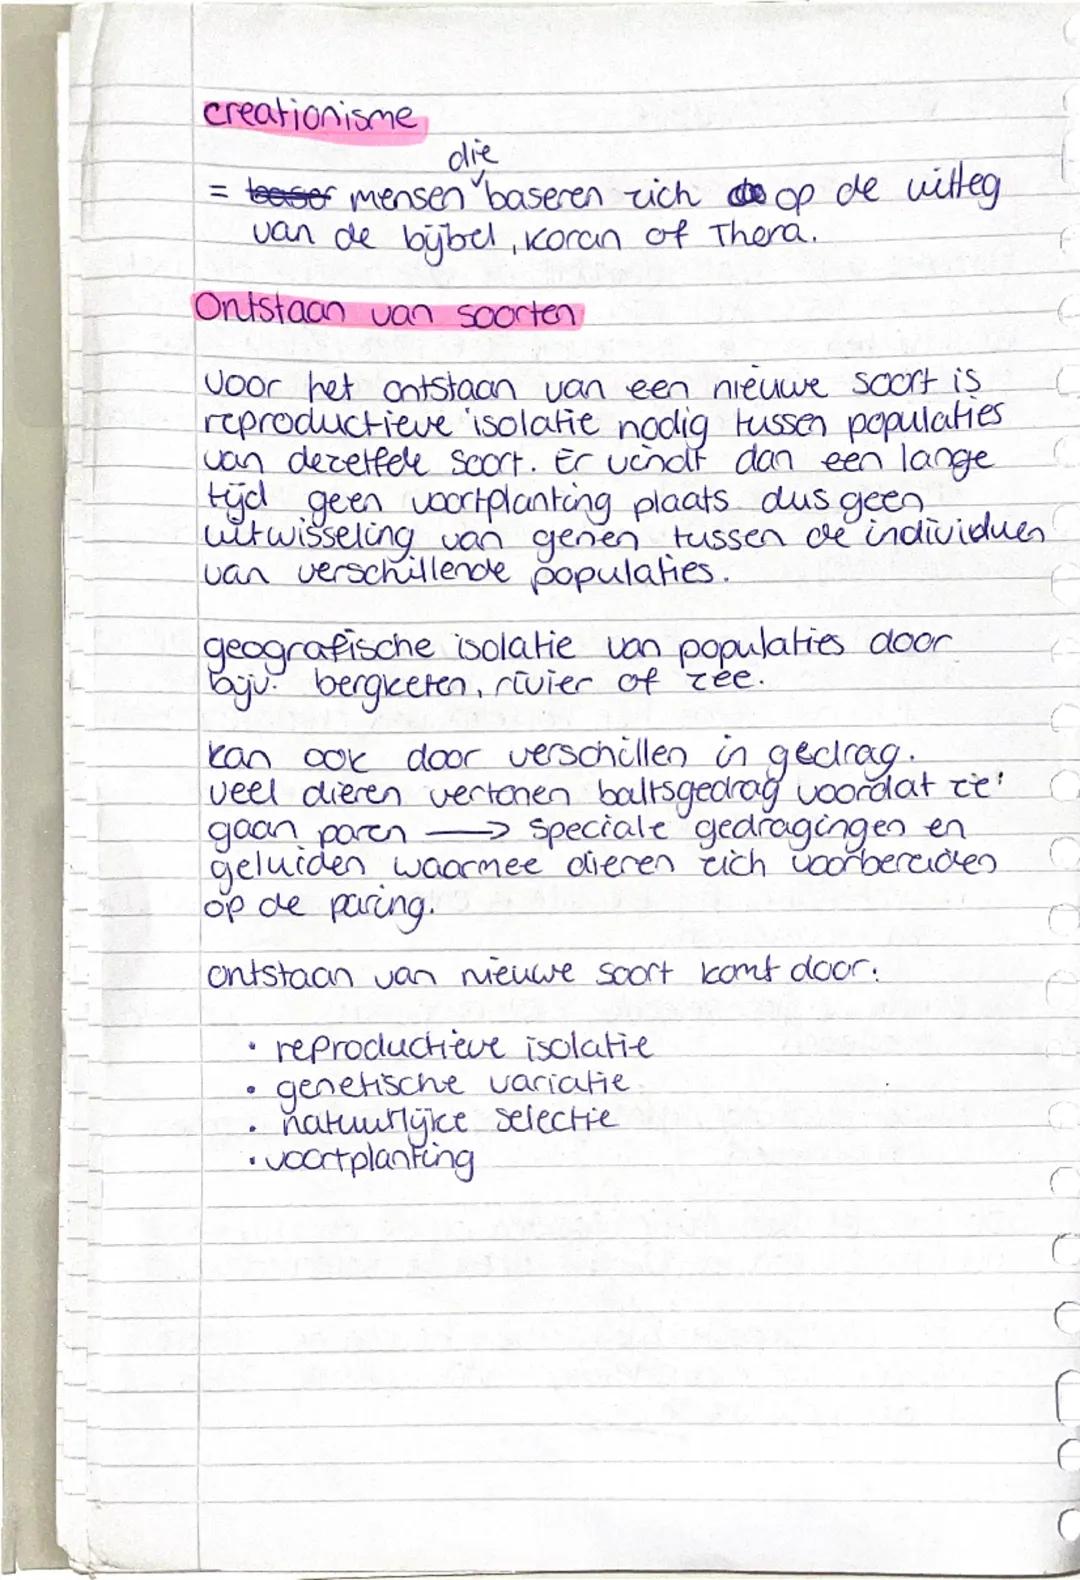 creationisme
die
= baser mensen baseren zich de op de uitleg
van de bijbel, Koran of Thora.
Ontstaan van soorten
voor het ontstaan van een nieuwe soort is
reproductieve isolatie nodig tussen populaties
van dezelfde soort. Er vindt dan een lange
tijd geen voortplanting plaats dus geen
uitwisseling van genen tussen de individuen
van verschillende populaties.
geografische isolatie van populaties door
bijv. bergketen, rivier of zee.
kan ook door verschillen in gedrag.
veel dieren vertonen baltsgedrag voordat ze
gaan paren → speciale gedragingen en
geluiden waarmee dieren zich voorbereiden
op de paring.
ontstaan van nieuwe soort komt door:
• reproductieve isolatie
• genetische variatie
• natuurlijke selectie
• voortplanting